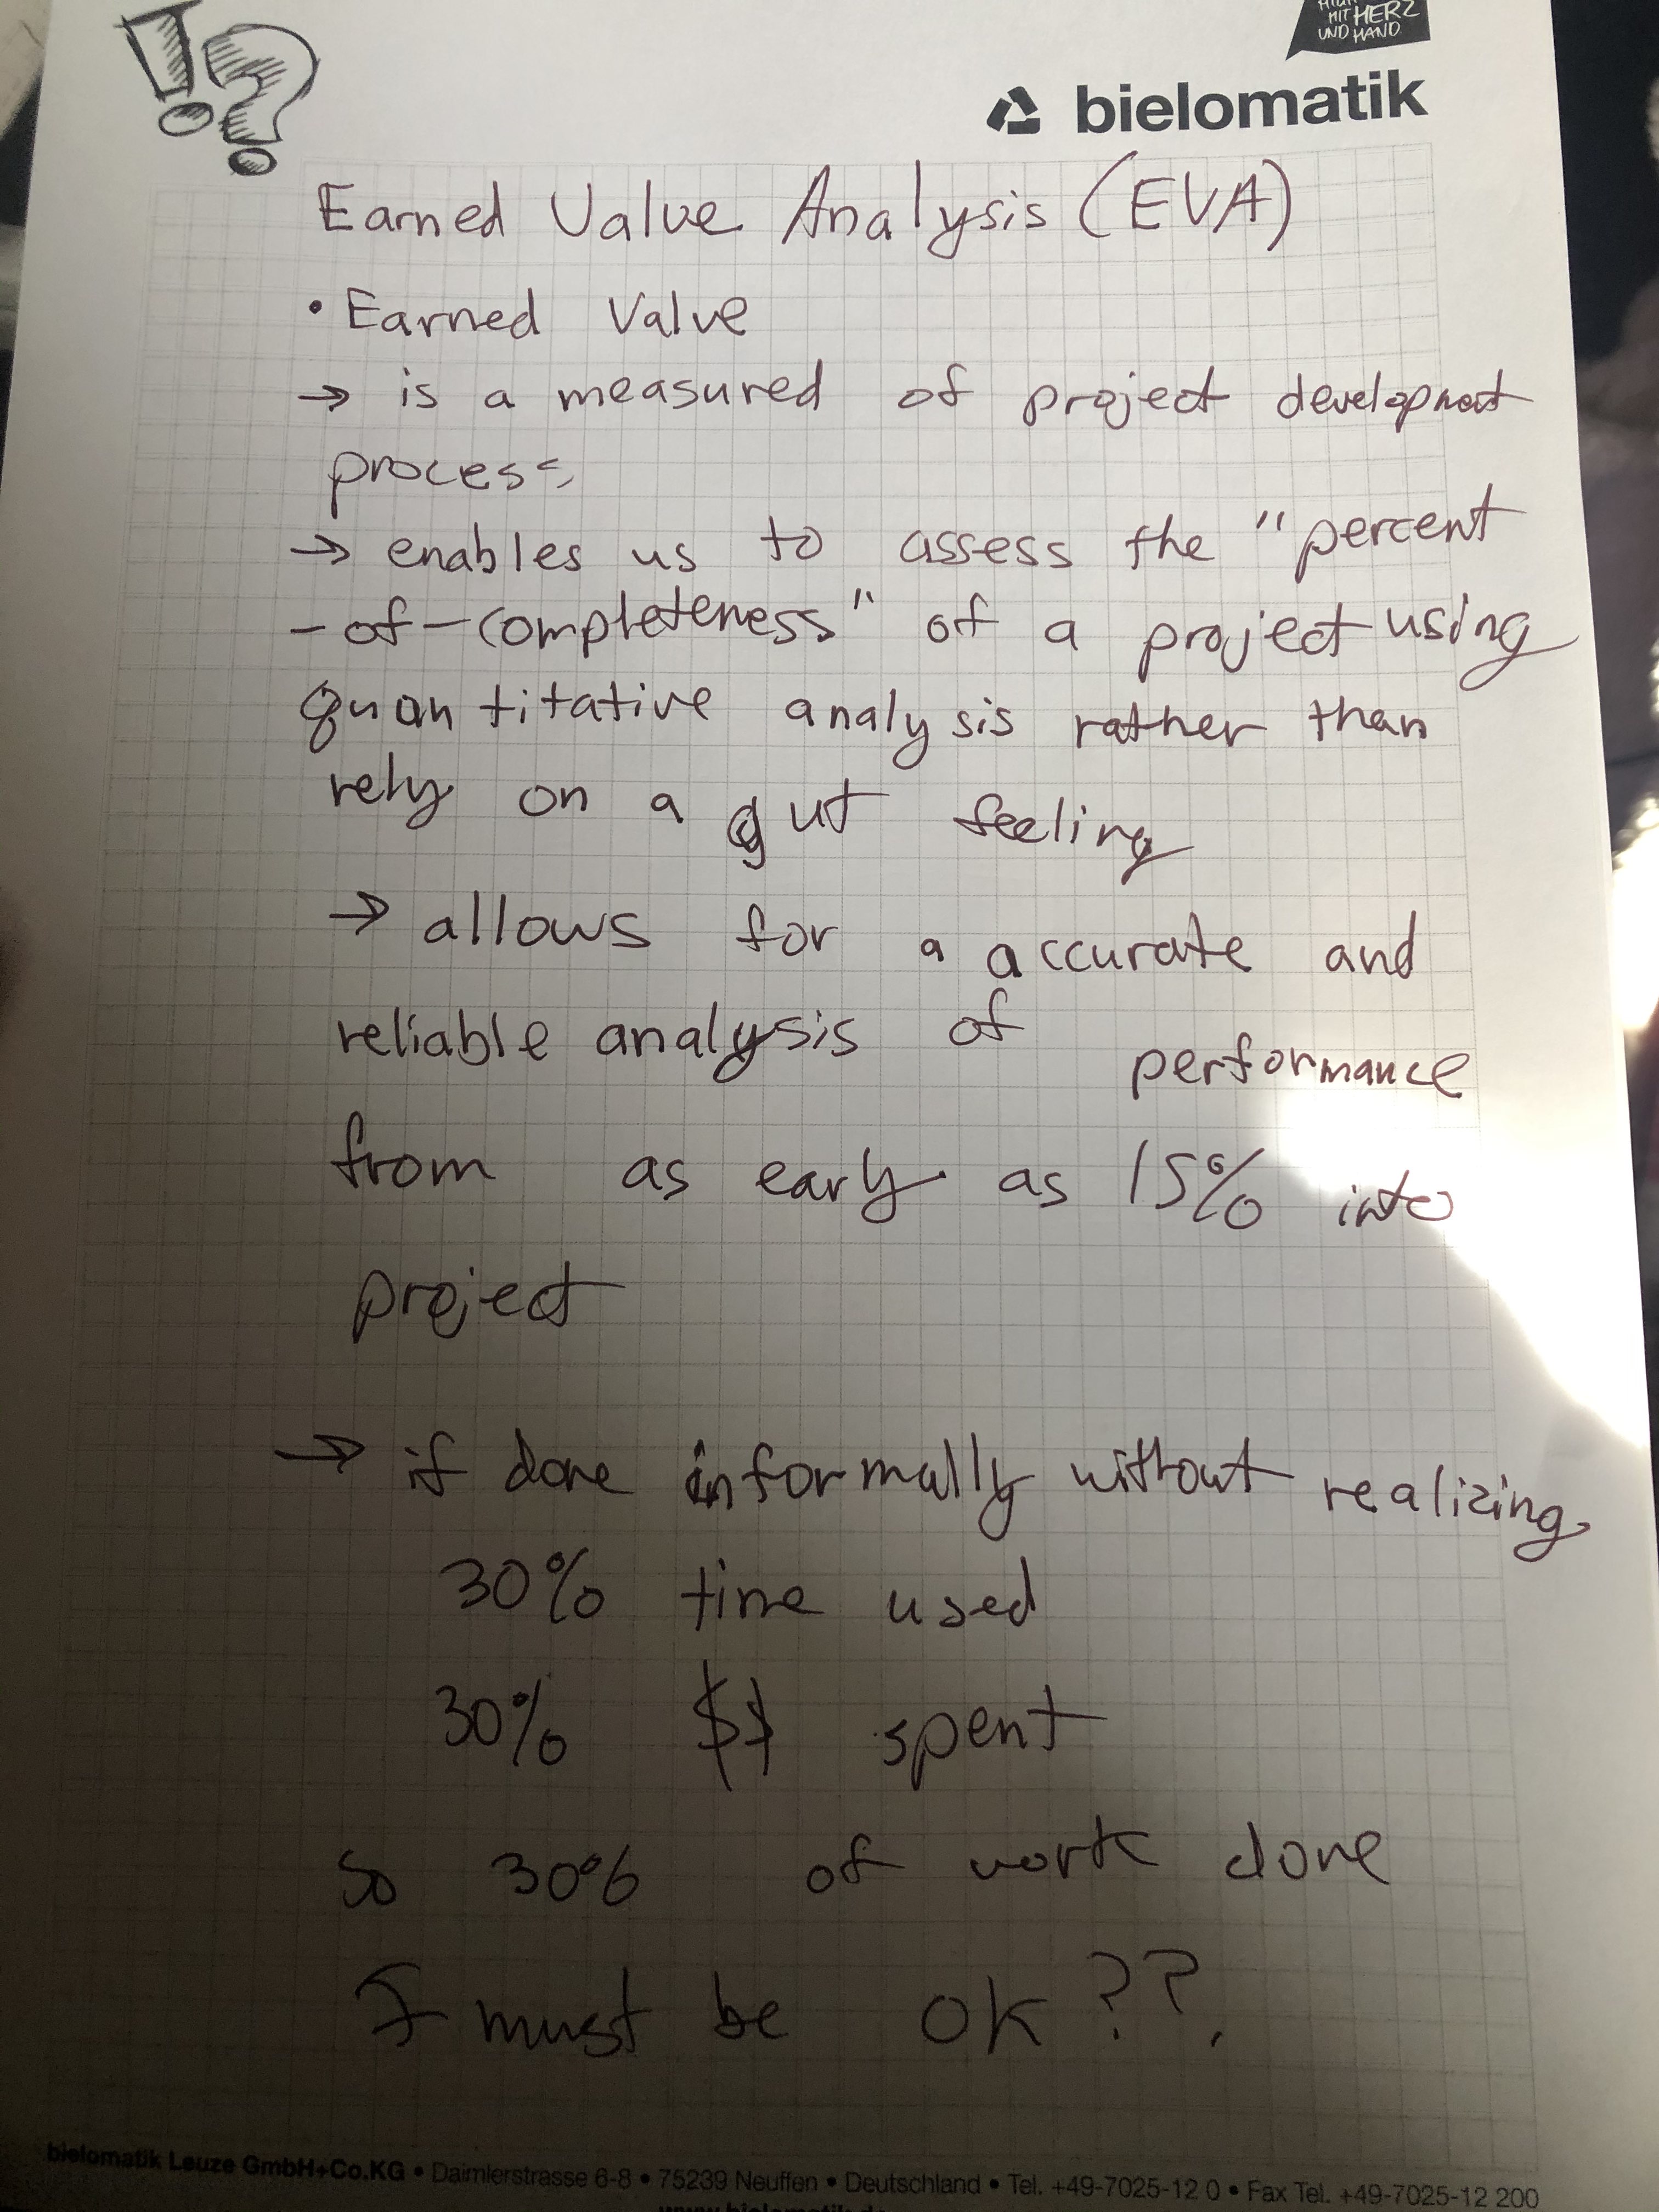 !?
MIT HERZ
UND HAND.
bielomatik
Earned Value Analysis (EVA)
• Earned Value
→ is a measured of project development
process
→ enables us to assess the "percent
-of-completeness" of a project using
quantitative analysis rather than
rely on a gut feeling
→ allows for a accurate and
reliable analysis of performance
from as early as 15% into
project
→ if done informally without realizing
30% time used
30% $$ spent
so 30% of work done
I must be ok??.
bielomatik Leuze GmbH+Co.KG • Daimlerstrasse 6-8 • 75239 Neuffen • Deutschland • Tel. +49-7025-12 0 • Fax Tel. +49-7025-12 200